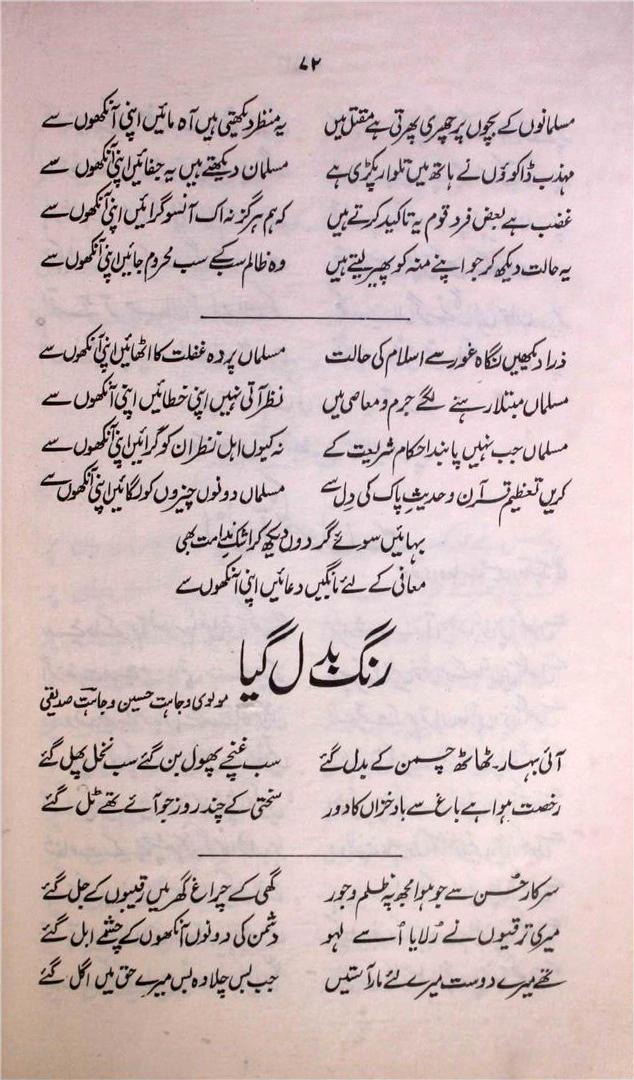 ۷۲
مسلمانوں کے بچوں پر چھری پھرتی ہے مقتل میں یہ منظر دیکھتی ہیں آہ مائیں اپنی آنکھوں سے
مہذب ڈاکوؤں نے ہاتھ میں تلوار پکڑی ہے مسلمان دیکھتے ہیں یہ جفائیں اپنی آنکھوں سے
غضب ہے بعض فرد قوم یہ تاکید کرتے ہیں کہ ہم ہرگز نہ اک آنسو گرائیں اپنی آنکھوں سے
یہ حالت دیکھ کر جو اپنے منہ کو پھیر لیتے ہیں وہ ظالم سب کے سب محروم جائیں اپنی آنکھوں سے
ذرا دیکھیں نگاہِ غور سے اسلام کی حالت مسلماں پردہ غفلت کا اٹھائیں اپنی آنکھوں سے
مسلماں مبتلا رہنے لگے جرم و معاصی میں نظر آتی نہیں اپنی خطائیں اپنی آنکھوں سے
مسلماں جب نہیں پابند احکام شریعت کے نہ کیوں اہل نظر ان کو گرائیں اپنی آنکھوں سے
کریں تعظیم قرآن و حدیثِ پاک کی دل سے مسلماں دونوں چیزوں کو لگائیں اپنی آنکھوں سے
بہائیں سوئے گردوں دیکھ کر اشک ندامت بھی
معافی کے لئے مانگیں دعائیں اپنی آنکھوں سے
رنگ بدل گیا
مولوی وجاہت حسین وجاہت صدیقی
آئی بہار۔ ٹھاٹھ چمن کے بدل گئے سب غنچے پھول بن گئے سب نخل پھل گئے
رخصت ہوا ہے باغ سے باد خزاں کا دور سختی کے چند روز جو آئے تھے ٹل گئے
سرکار حُسن سے جو ہوا مجھ پہ ظلم و جور گھی کے چراغ گھر میں رقیبوں کے جل گئے
میری ترقیوں نے رُلایا اُسے لہو دشمن کی دونوں آنکھوں کے چشمے ابل گئے
تھے میرے دوست میرے لئے مار آستیں جب بس چلا وہ بس میرے حق میں اگل گئے